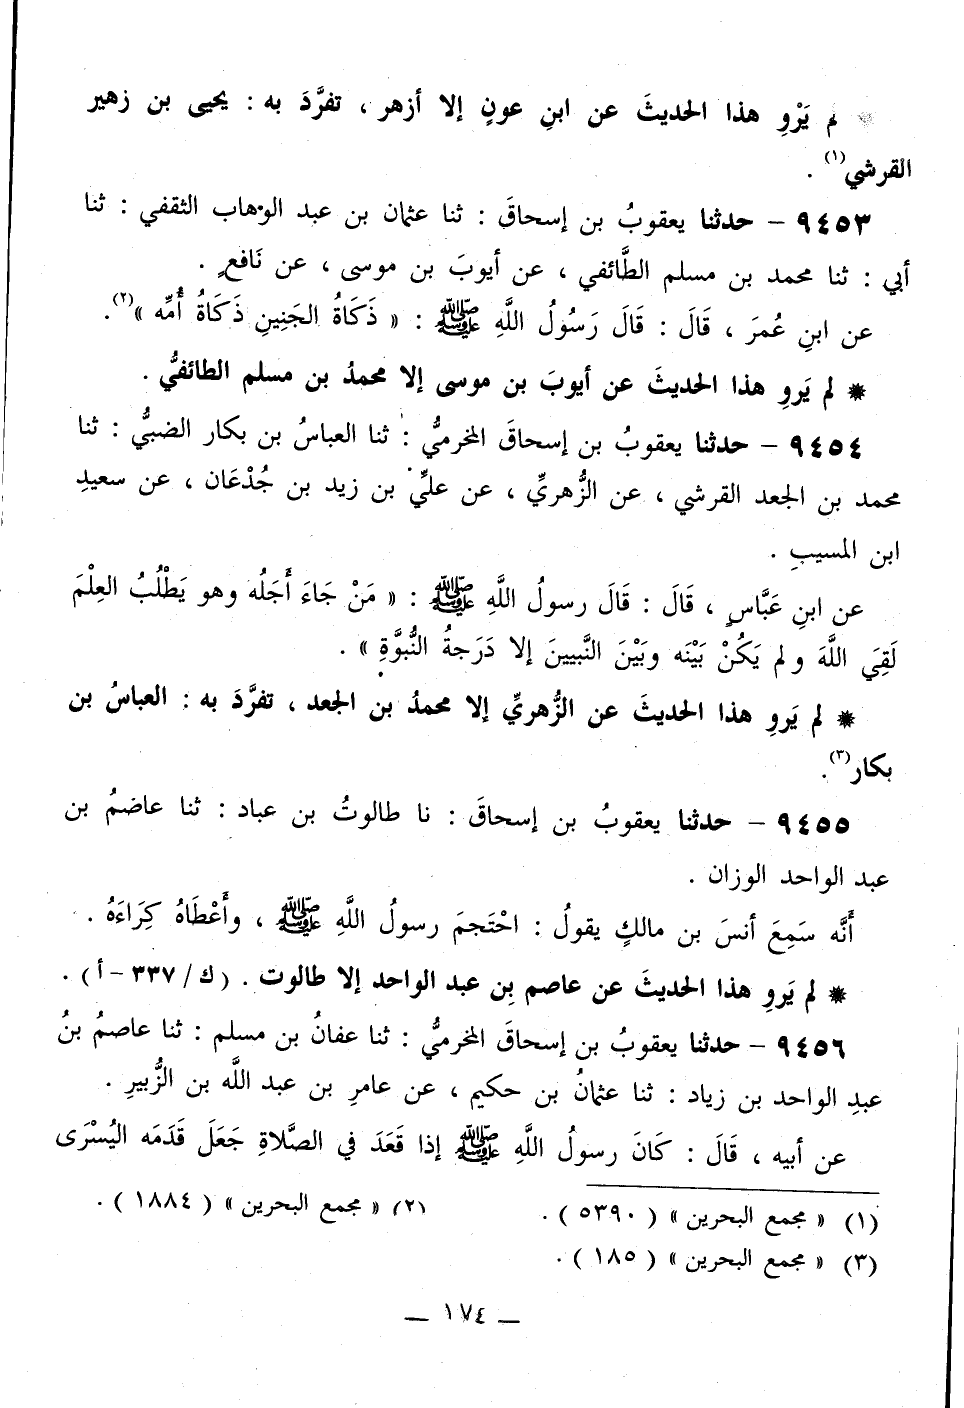 * لم يَرْوِ هذا الحديثَ عن ابنِ عونٍ إلا أزهر ، تفرَّدَ به : يحيى بن زهير
القرشي(١) .
٩٤٥٣ – حدثنا يعقوبُ بن إسحاقَ : ثنا عثمان بن عبد الوهاب الثقفي : ثنا
أبي : ثنا محمد بن مسلم الطَّائفي ، عن أيوبَ بن موسى ، عن نَافعٍ .
عن ابنِ عُمرَ ، قَالَ : قَالَ رَسُولُ اللَّهِ ﷺ : « ذَكَاةُ الجَنِينِ ذَكَاةُ أُمِّه »(٢).
* لم يَروِ هذا الحديثَ عن أيوبَ بن موسى إلا محمدُ بن مسلم الطائفيُّ .
٩٤٥٤ – حدثنا يعقوبُ بن إسحاقَ المخرميُّ : ثنا العباسُ بن بكار الضبيُّ : ثنا
محمد بن الجعد القرشي ، عن الزُّهريِّ ، عن عليِّ بن زيد بن جُدْعَان ، عن سعيدِ
ابن المسيبِ .
عن ابنِ عَبَّاسٍ ، قَالَ : قَالَ رسولُ اللَّهِ ﷺ : « مَنْ جَاءَ أَجَلُه وهو يَطْلُبُ العِلْمَ
لَقِيَ اللَّهَ ولم يَكُنْ بَيْنَه وبَيْنَ النَّبيينَ إلا دَرَجةُ النُّبوَّةِ » .
* لم يَروِ هذا الحديثَ عن الزُّهريِّ إلا محمدُ بن الجعد ، تفرَّدَ به : العباسُ بن
بكار(٣).
٩٤٥٥ – حدثنا يعقوبُ بن إسحاقَ : نا طالوتُ بن عباد : ثنا عاصمُ بن
عبد الواحد الوزان .
أَنَّه سَمِعَ أنسَ بن مالكٍ يقولُ : احْتَجمَ رسولُ اللَّهِ ﷺ ، وأَعْطَاهُ كِرَاءَهُ .
* لم يروِ هذا الحديثَ عن عاصم بِن عبد الواحد إلا طالوت . ( ك / ٣٣٧ – أ ) .
٩٤٥٦ – حدثنا يعقوبُ بن إسحاقَ المخرميُّ : ثنا عفانُ بن مسلم : ثنا عاصمُ بنُ
عبدِ الواحد بن زياد : ثنا عثمانُ بن حكيم ، عن عامرِ بن عبد اللَّه بن الزُّبيرِ .
عن أبيه ، قَالَ : كَانَ رسولُ اللَّهِ ﷺ إذا قَعَدَ في الصَّلاةِ جَعَلَ قَدَمَه اليُسْرَى
(١) « مجمع البحرين » ( ٥٣٩٠ ) . (٢) « مجمع البحرين » ( ١٨٨٤ ) .
(٣) « مجمع البحرين » ( ١٨٥ ) .
— ١٧٤ —